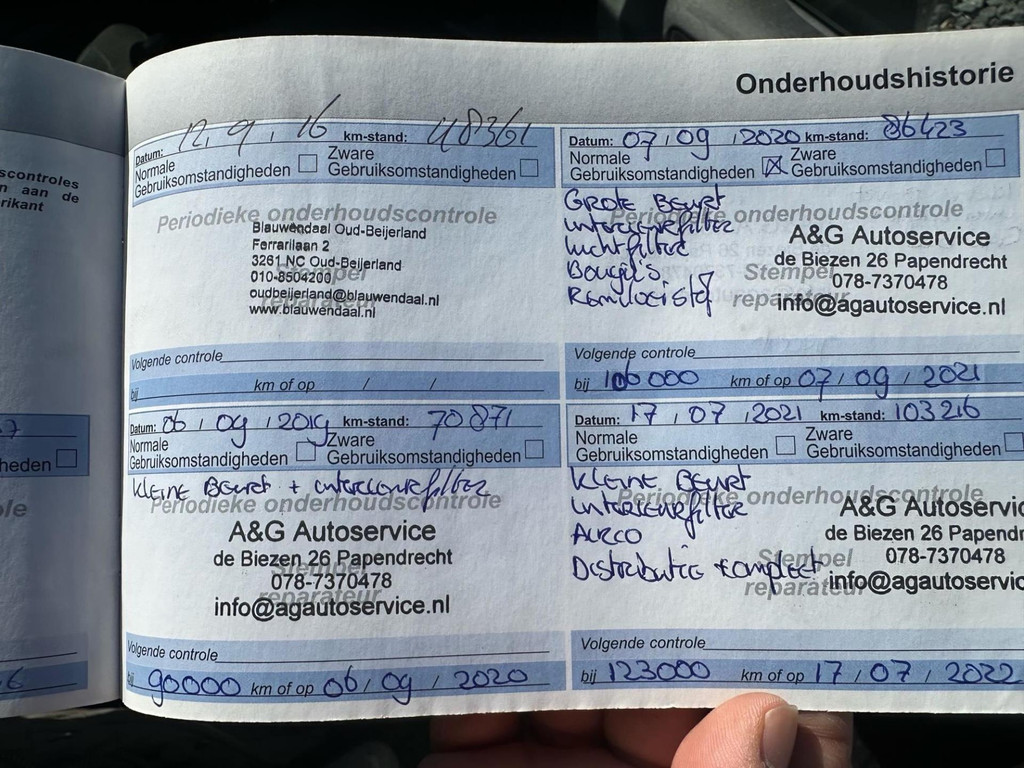 Onderhoudshistorie
scontroles
n aan de
rikant
heden
Datum: 12, 9, 16 km-stand: 48361
Normale Gebruiksomstandigheden Zware Gebruiksomstandigheden
Periodieke onderhoudscontrole
Blauwendaal Oud-Beijerland
Ferrarilaan 2
3261 NC Oud-Beijerland
010-8504200
Stempel
oudbeijerland@blauwendaal.nl
reparateur
www.blauwendaal.nl
Volgende controle
bij km of op / /
Datum: 07 / 09 / 2020 km-stand: 86423
Normale Gebruiksomstandigheden Zware Gebruiksomstandigheden
GROTE BEURT
Periodieke onderhoudscontrole
interieurfilter
A&G Autoservice
luchtfilter
de Biezen 26 Papendrecht
Bougie's
Stempel
078-7370478
Remvloeistof
reparateur
info@agautoservice.nl
Volgende controle
bij 100000 km of op 07 / 09 / 2021
Datum: 06 / 09 / 2019 km-stand: 70871
Normale Gebruiksomstandigheden Zware Gebruiksomstandigheden
Kleine Beurt + interieurfilter
Periodieke onderhoudscontrole
A&G Autoservice
de Biezen 26 Papendrecht
Stempel
078-7370478
reparateur
info@agautoservice.nl
Volgende controle
bij 90000 km of op 06 / 09 / 2020
Datum: 17 / 07 / 2021 km-stand: 103216
Normale Gebruiksomstandigheden Zware Gebruiksomstandigheden
Kleine Beurt
Periodieke onderhoudscontrole
Interieurfilter
A&G Autoservic
AIRCO
de Biezen 26 Papendr
Distributie compleet
Stempel
078-7370478
reparateur
info@agautoservic
Volgende controle
bij 123000 km of op 17 / 07 / 2022